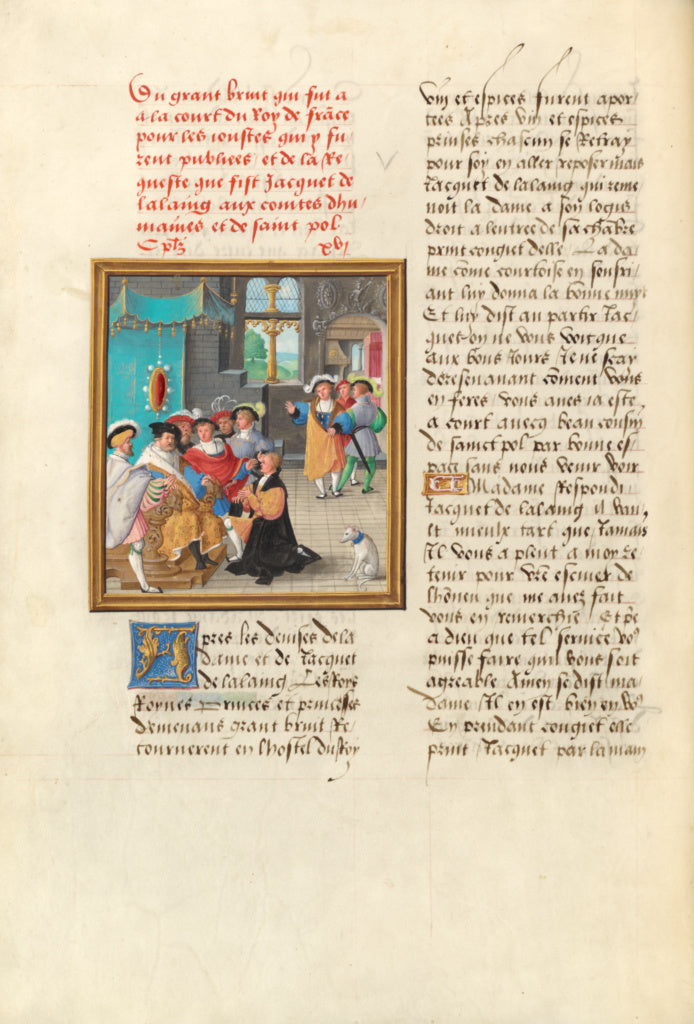 Du grant bruit qui fut a
a la court du Roy de frāce
pour les ioustes qui y fu/
rent publiees / et de la Re/
queste que fist Jacquet de
lalaing aux comtes dhu/
maines et de saint pol
xvj
Apres les deuises de la
dame et de Jacquet
de lalaing Les Roys
Roynes Princes et princesses
demenans grant bruit Re/
tournerent en lhostel du Roy
vin et espices furent apor/
tees Apres vin et espices
prinses chascun se Retray
pour soy en aller reposer mais
Jacquet de lalaing qui reme/
noit la dame a son logis
droit a lentree de sa chābre
print congiet delle / La da/
me cōme courtoise en soufri/
ant luy donna la bonne nuyt
Et luy dist au partir Jac/
ques on ne vous voit que
aux bons Jours Je ne scay
doresenauant cōment vous
en feres / vous aues ia este
a court auecq beau cousin
de sainct pol par bonne es/
pace sans nous venir voir
Madame Respondi
Jacquet de lalaing il vau/
lt mieulx tart que Jamais
Il vous a pleut a moy re/
tenir pour vrē escuier de
lhōneur que me auez fait
vous en remerchie / Et pē
a dieu que tel seruice vo9
puisse faire qui vous soit
agreable Amen se dist ma
dame / Il en est bien en vo9
En prendant congiet elle
print Jacquet par la main